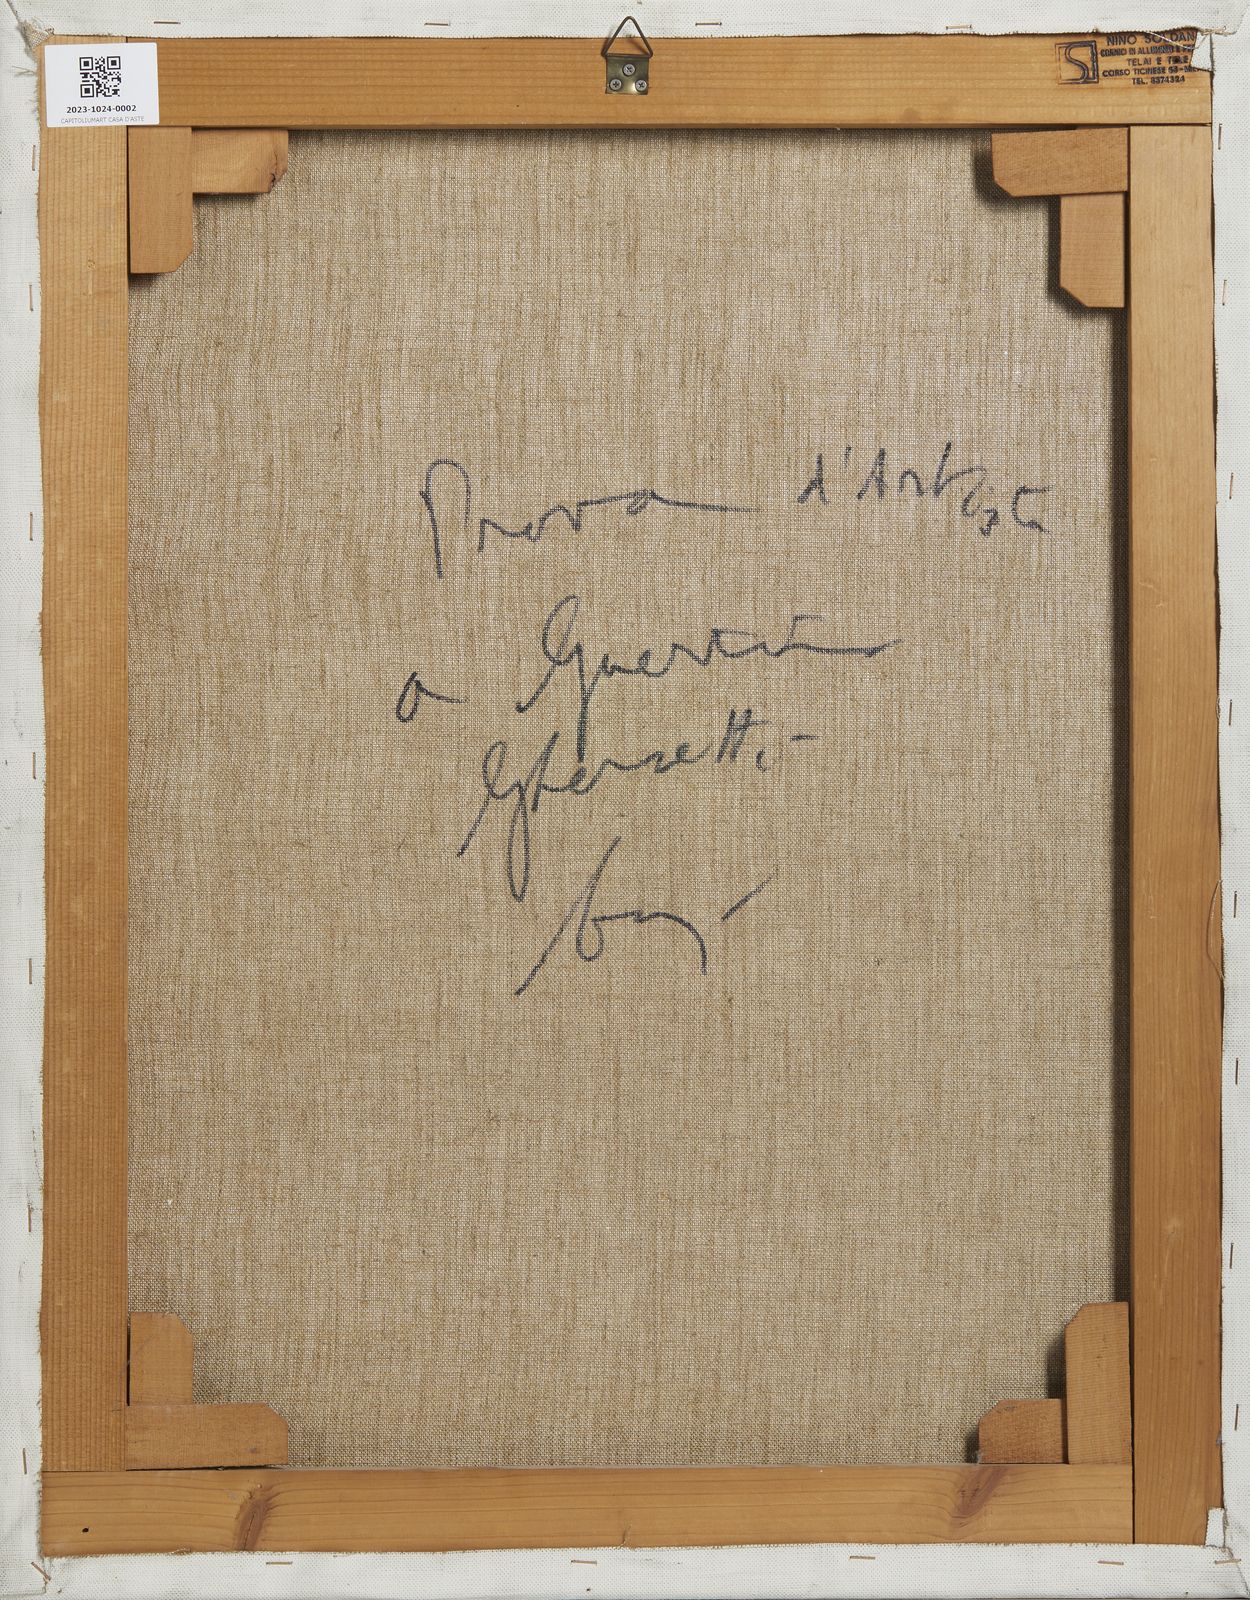 2023-1024-0002
CAPITOLIUMART CASA D'ASTE
NINO SOLDAN
CORNICI IN ALLUMINIO E
TELAI E TELE
CORSO TICINESE 53-MI
TEL. 8374324
Prova d'Artista
a
Ghersetti